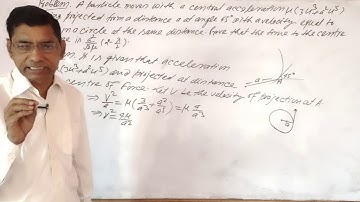 Problem. A particle moves with a central acceleration μ(3u³+a²u⁵)
being projected from a distance a at angle 45° with a velocity equal to
in a circle at the same distance. Prove that the time to the centre
is a²/√2μ (2-π/2).
It is given that acceleration
(3u³+a²u⁵) and projected at distance
centre of force. Let V be the velocity of projection at A.
⇒ V²/a = μ(3/a³+a²/a⁵) = μ 4/a³
⇒ V² = 4μ/a²
a
45°